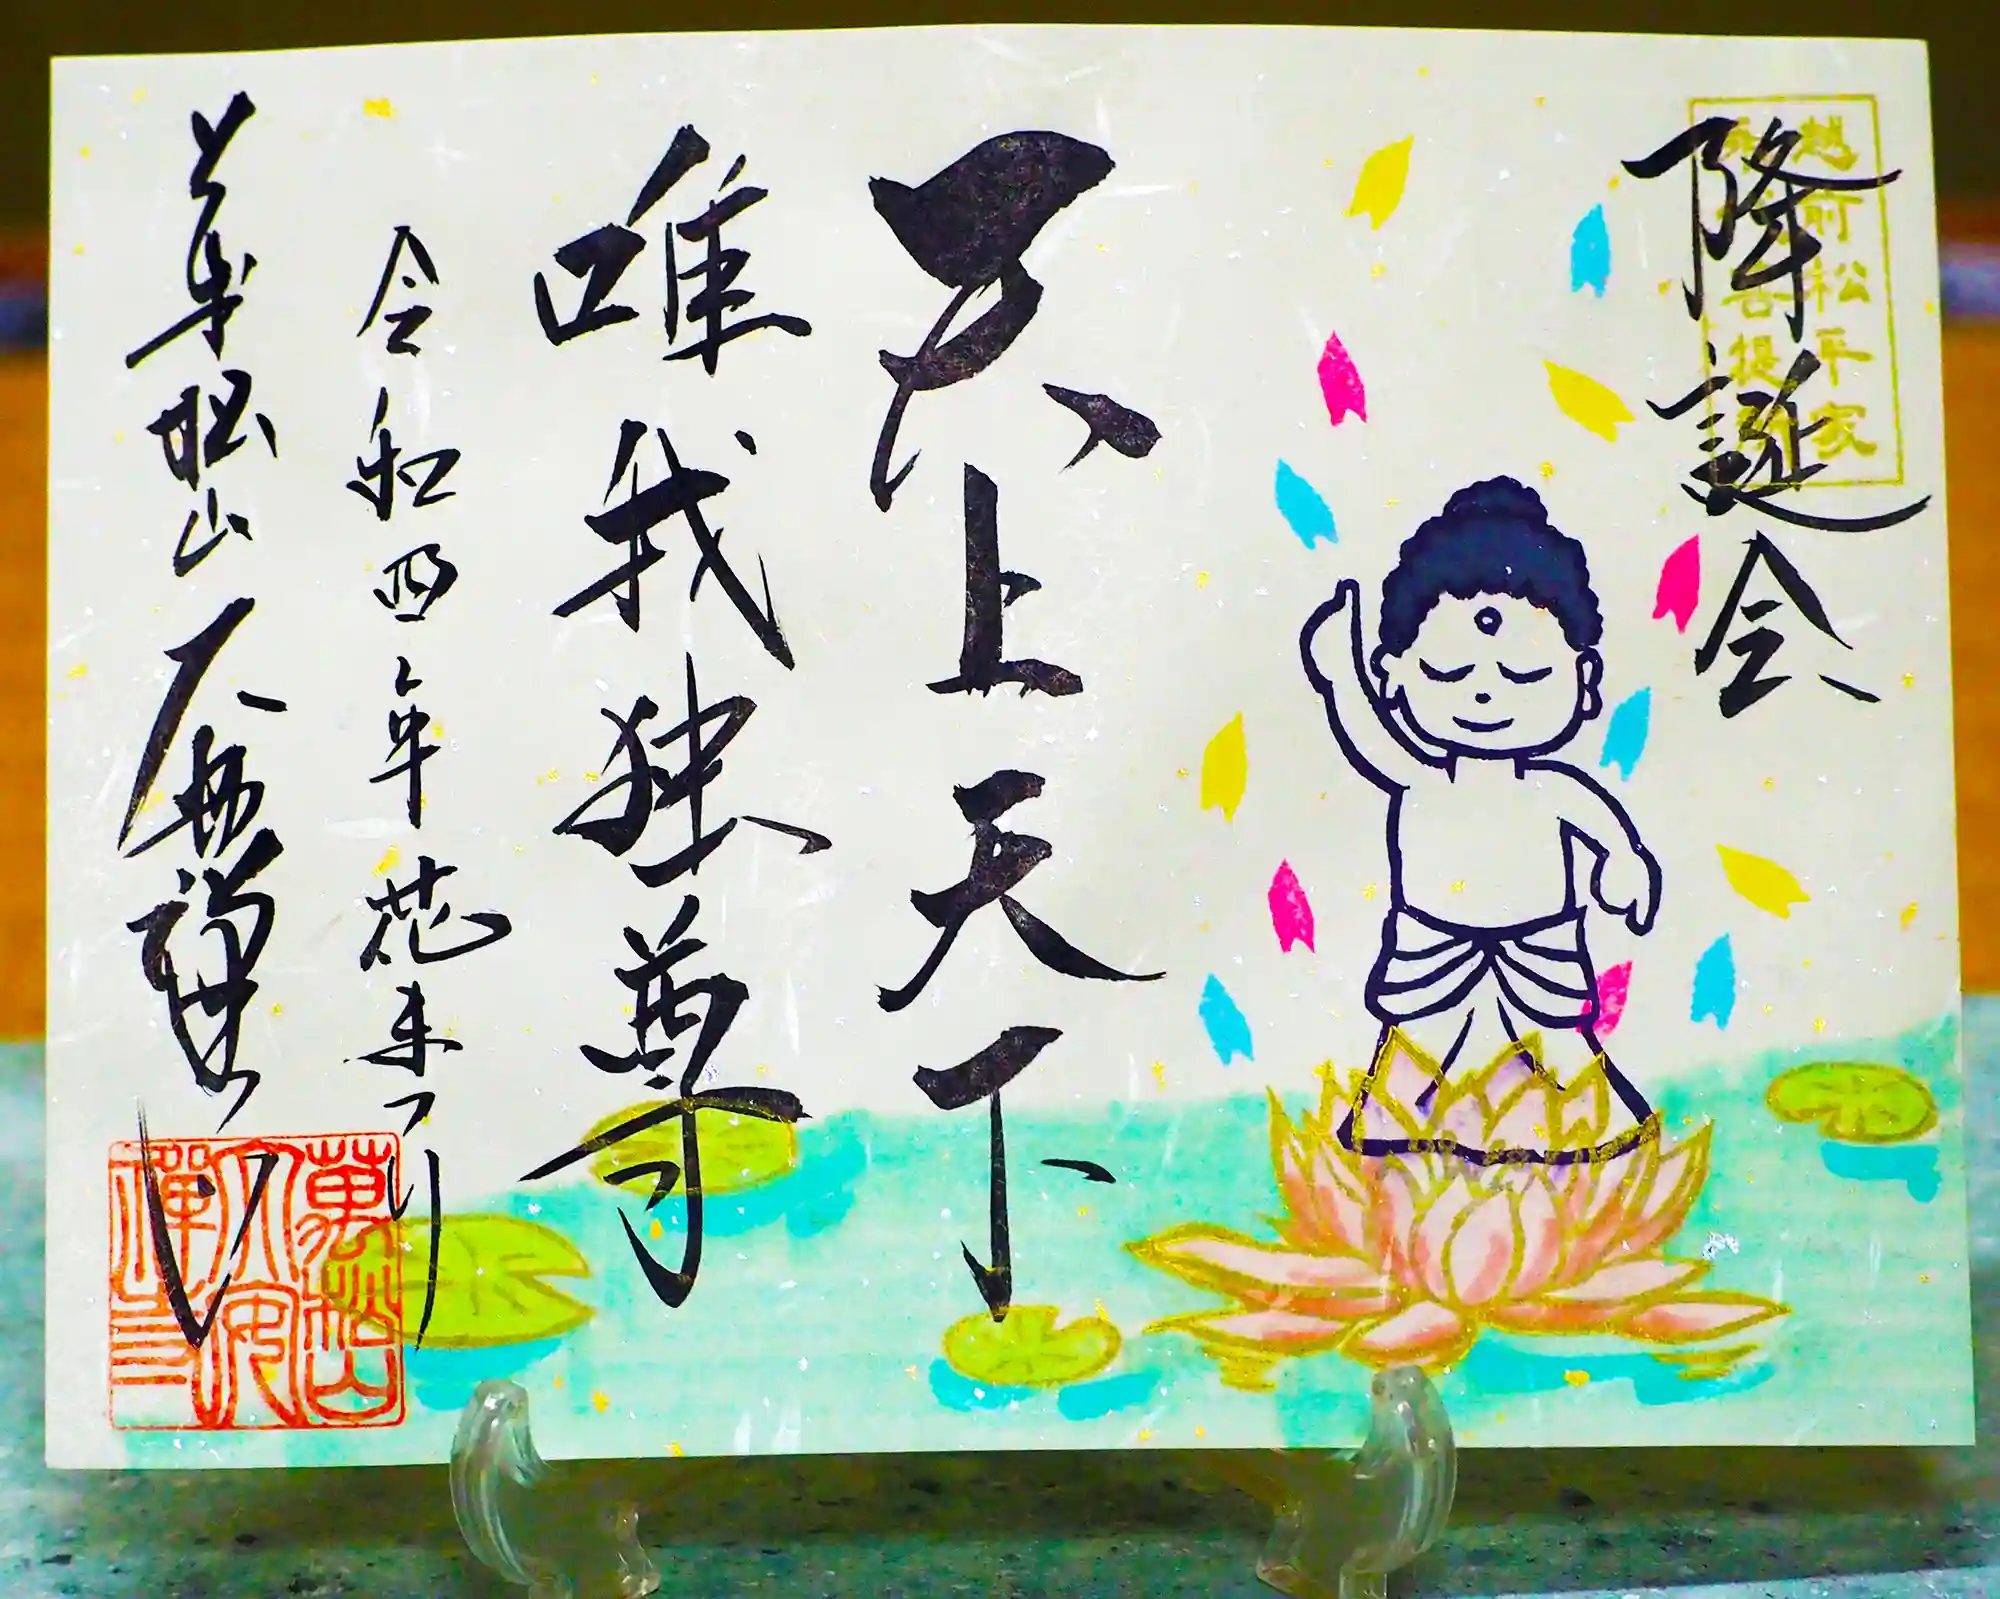 降誕会
越前松平家
菩提
天上天下
唯我独尊
令和四年花まつり
萬松山大安禅寺
萬松山
大安
禅寺